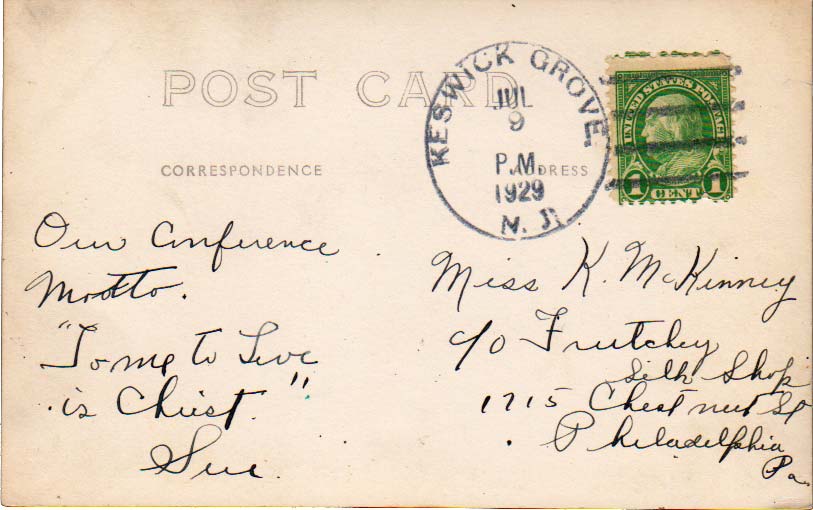 POST CARD
CORRESPONDENCE
ADDRESS
KESWICK GROVE.
JUL
9
P.M.
1929
N. J.
UNITED STATES POSTAGE
1 CENT 1
Our Conference
Motto.
"To me to Live
is Christ."
Sue.
Miss K. McKinney
c/o Frutchey
Silk Shop
1715 Chestnut St
Philadelphia
Pa.